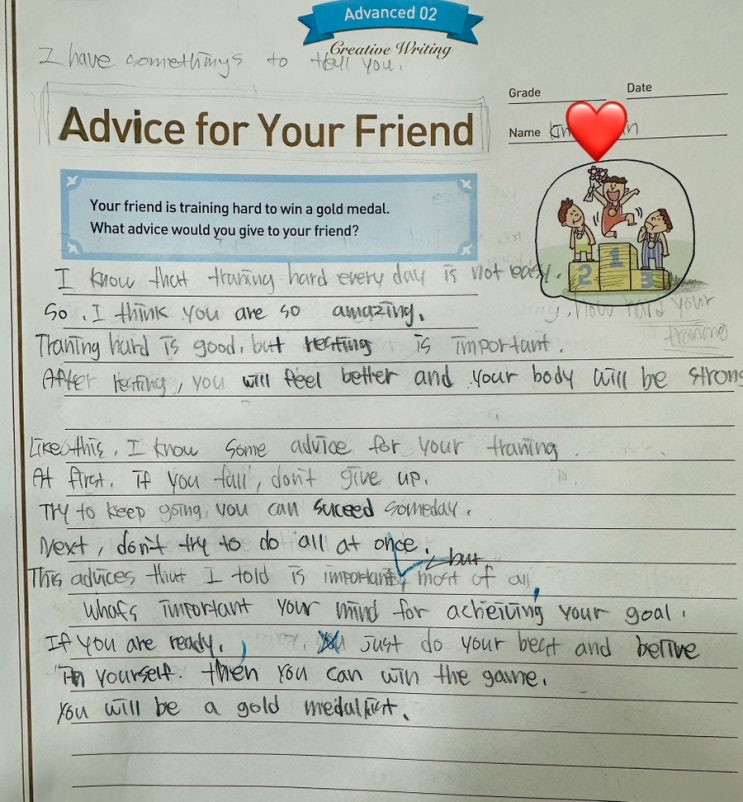 Advanced 02
Creative Writing
I have somethings to tell you.
Grade
Date
Advice for Your Friend
Name
Your friend is training hard to win a gold medal.
What advice would you give to your friend?
2 1 3
I know that traning hard every day is not easy.
So, I think you are so amazing.
how hard your
traning
Traning hard is good, but resting is important.
After resting, you will feel better and your body will be strong
Like this, I know some advice for your traning
At first, if you fail, don't give up.
Try to keep going, you can suceed someday.
Next, don't try to do all at once.
but
This advices that I told is important, most of all
what's important your mind for acheiving your goal.
If you are ready, just do your best and belive
in yourself. then you can win the game.
You will be a gold medalist.